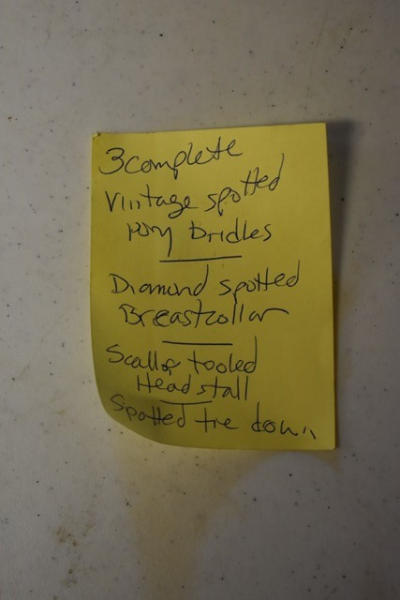 3 complete
Vintage spotted
pony bridles
Diamond spotted
Breastcollar
Scallop tooled
Headstall
Spotted tie down